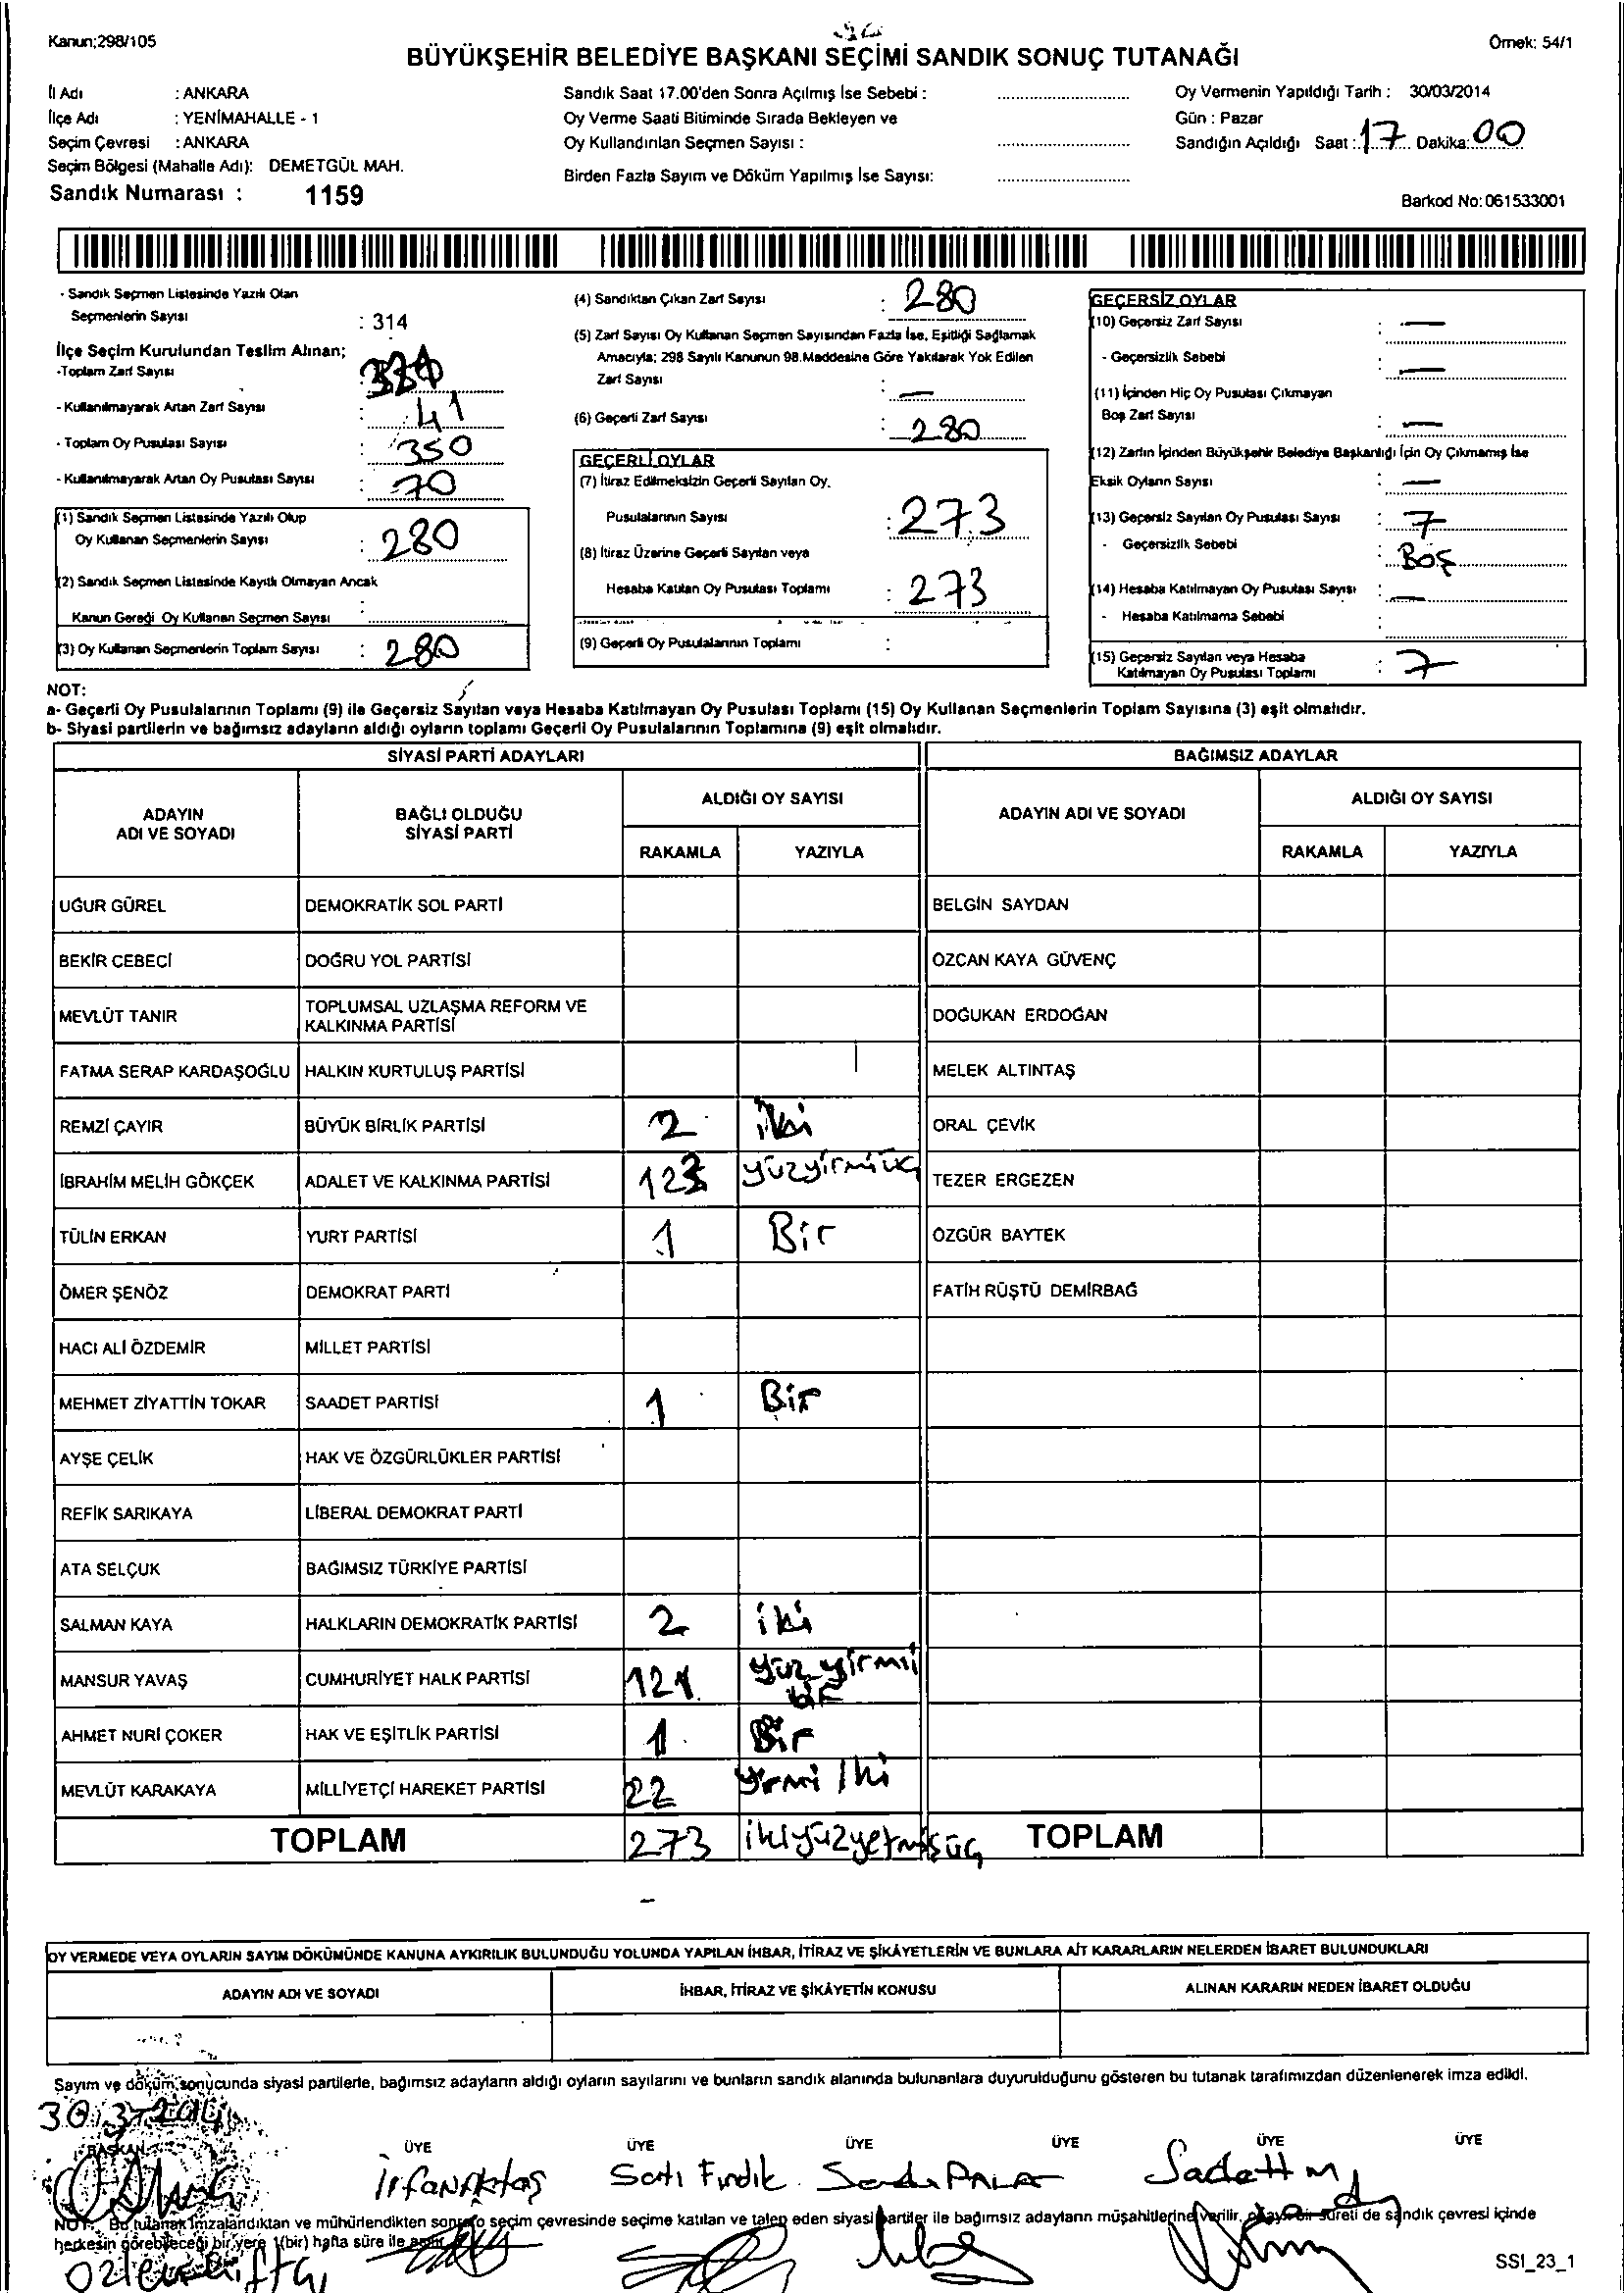 Kanun;298/105
BÜYÜKŞEHİR BELEDİYE BAŞKANI SEÇİMİ SANDIK SONUÇ TUTANAĞI
Örnek: 54/1
İl Adı : ANKARA
İlçe Adı : YENİMAHALLE - 1
Seçim Çevresi : ANKARA
Seçim Bölgesi (Mahalle Adı): DEMETGÜL MAH.
Sandık Numarası : 1159
Sandık Saat 17.00'den Sonra Açılmış İse Sebebi :
Oy Verme Saati Bitiminde Sırada Bekleyen ve
Oy Kullandırılan Seçmen Sayısı :
Birden Fazla Sayım ve Döküm Yapılmış İse Sayısı:
Oy Vermenin Yapıldığı Tarih : 30/03/2014
Gün : Pazar
Sandığın Açıldığı Saat : 17 Dakika: 00
Barkod No: 061533001
- Sandık Seçmen Listesinde Yazılı Olan
Seçmenlerin Sayısı : 314
İlçe Seçim Kurulundan Teslim Alınan;
-Toplam Zarf Sayısı :
- Kullanılmayarak Artan Zarf Sayısı : 41
- Toplam Oy Pusulası Sayısı : 350
- Kullanılmayarak Artan Oy Pusulası Sayısı : 70
(1) Sandık Seçmen Listesinde Yazılı Olup
Oy Kullanan Seçmenlerin Sayısı : 280
(2) Sandık Seçmen Listesinde Kayıtlı Olmayan Ancak
Kanun Gereği Oy Kullanan Seçmen Sayısı :
(3) Oy Kullanan Seçmenlerin Toplam Sayısı : 280
(4) Sandıktan Çıkan Zarf Sayısı : 280
(5) Zarf Sayısı Oy Kullanan Seçmen Sayısından Fazla İse, Eşitliği Sağlamak
Amacıyla; 298 Sayılı Kanunun 98.Maddesine Göre Yakılarak Yok Edilen
Zarf Sayısı : —
(6) Geçerli Zarf Sayısı : 280
GEÇERLİ OYLAR
(7) İtiraz Edilmeksizin Geçerli Sayılan Oy.
Pusulalarının Sayısı : 273
(8) İtiraz Üzerine Geçerli Sayılan veya
Hesaba Katılan Oy Pusulası Toplamı : 273
(9) Geçerli Oy Pusulalarının Toplamı :
GEÇERSİZ OYLAR
(10) Geçersiz Zarf Sayısı : —
- Geçersizlik Sebebi : —
(11) İçinden Hiç Oy Pusulası Çıkmayan
Boş Zarf Sayısı : —
(12) Zarfın İçinden Büyükşehir Belediye Başkanlığı İçin Oy Çıkmamış İse
Eksik Oyların Sayısı : —
(13) Geçersiz Sayılan Oy Pusulası Sayısı : 7
- Geçersizlik Sebebi : BOŞ
(14) Hesaba Katılmayan Oy Pusulası Sayısı : —
- Hesaba Katılmama Sebebi :
(15) Geçersiz Sayılan veya Hesaba
Katılmayan Oy Pusulası Toplamı : 7
NOT:
a- Geçerli Oy Pusulalarının Toplamı (9) ile Geçersiz Sayılan veya Hesaba Katılmayan Oy Pusulası Toplamı (15) Oy Kullanan Seçmenlerin Toplam Sayısına (3) eşit olmalıdır.
b- Siyasi partilerin ve bağımsız adayların aldığı oyların toplamı Geçerli Oy Pusulalarının Toplamına (9) eşit olmalıdır.
SİYASİ PARTİ ADAYLARI BAĞIMSIZ ADAYLAR
ADAYIN
ADI VE SOYADI
BAĞLI OLDUĞU
SİYASİ PARTİ
ALDIĞI OY SAYISI
RAKAMLA YAZIYLA
ADAYIN ADI VE SOYADI
ALDIĞI OY SAYISI
RAKAMLA YAZIYLA
UĞUR GÜREL DEMOKRATİK SOL PARTİ BELGİN SAYDAN
BEKİR CEBECİ DOĞRU YOL PARTİSİ ÖZCAN KAYA GÜVENÇ
MEVLÜT TANIR TOPLUMSAL UZLAŞMA REFORM VE
KALKINMA PARTİSİ DOĞUKAN ERDOĞAN
FATMA SERAP KARDAŞOĞLU HALKIN KURTULUŞ PARTİSİ MELEK ALTINTAŞ
REMZİ ÇAYIR BÜYÜK BİRLİK PARTİSİ 2 iki ORAL ÇEVİK
İBRAHİM MELİH GÖKÇEK ADALET VE KALKINMA PARTİSİ 123 yüzyirmiüç TEZER ERGEZEN
TÜLİN ERKAN YURT PARTİSİ 1 Bir ÖZGÜR BAYTEK
ÖMER ŞENÖZ DEMOKRAT PARTİ FATİH RÜŞTÜ DEMİRBAĞ
HACI ALİ ÖZDEMİR MİLLET PARTİSİ
MEHMET ZİYATTİN TOKAR SAADET PARTİSİ 1 Bir
AYŞE ÇELİK HAK VE ÖZGÜRLÜKLER PARTİSİ
REFİK SARIKAYA LİBERAL DEMOKRAT PARTİ
ATA SELÇUK BAĞIMSIZ TÜRKİYE PARTİSİ
SALMAN KAYA HALKLARIN DEMOKRATİK PARTİSİ 2 iki
MANSUR YAVAŞ CUMHURİYET HALK PARTİSİ 121 yüz yirmi
bir
AHMET NURİ ÇOKER HAK VE EŞİTLİK PARTİSİ 1 Bir
MEVLÜT KARAKAYA MİLLİYETÇİ HAREKET PARTİSİ 22 yirmi iki
TOPLAM 273 ikiyüzyetmişüç TOPLAM
OY VERMEDE VEYA OYLARIN SAYIM DÖKÜMÜNDE KANUNA AYKIRILIK BULUNDUĞU YOLUNDA YAPILAN İHBAR, İTİRAZ VE ŞİKÂYETLERİN VE BUNLARA AİT KARARLARIN NELERDEN İBARET BULUNDUKLARI
ADAYIN ADI VE SOYADI İHBAR, İTİRAZ VE ŞİKÂYETİN KONUSU ALINAN KARARIN NEDEN İBARET OLDUĞU
Sayım ve döküm sonucunda siyasi partilerle, bağımsız adayların aldığı oyların sayılarını ve bunların sandık alanında bulunanlara duyurulduğunu gösteren bu tutanak tarafımızdan düzenlenerek imza edildi.
30.3.2014
BAŞKAN ÜYE ÜYE ÜYE ÜYE ÜYE ÜYE
İrfan Aktaş Satı Fındık Seda PALA Sadettin
NOT: Bu tutanak imzalandıktan ve mühürlendikten sonra o seçim çevresinde seçime katılan ve talep eden siyasi partiler ile bağımsız adayların müşahitlerine verilir, onaylı bir sureti de sandık çevresi içinde
herkesin görebileceği bir yere 1(bir) hafta süre ile asılır.
SSI_23_1